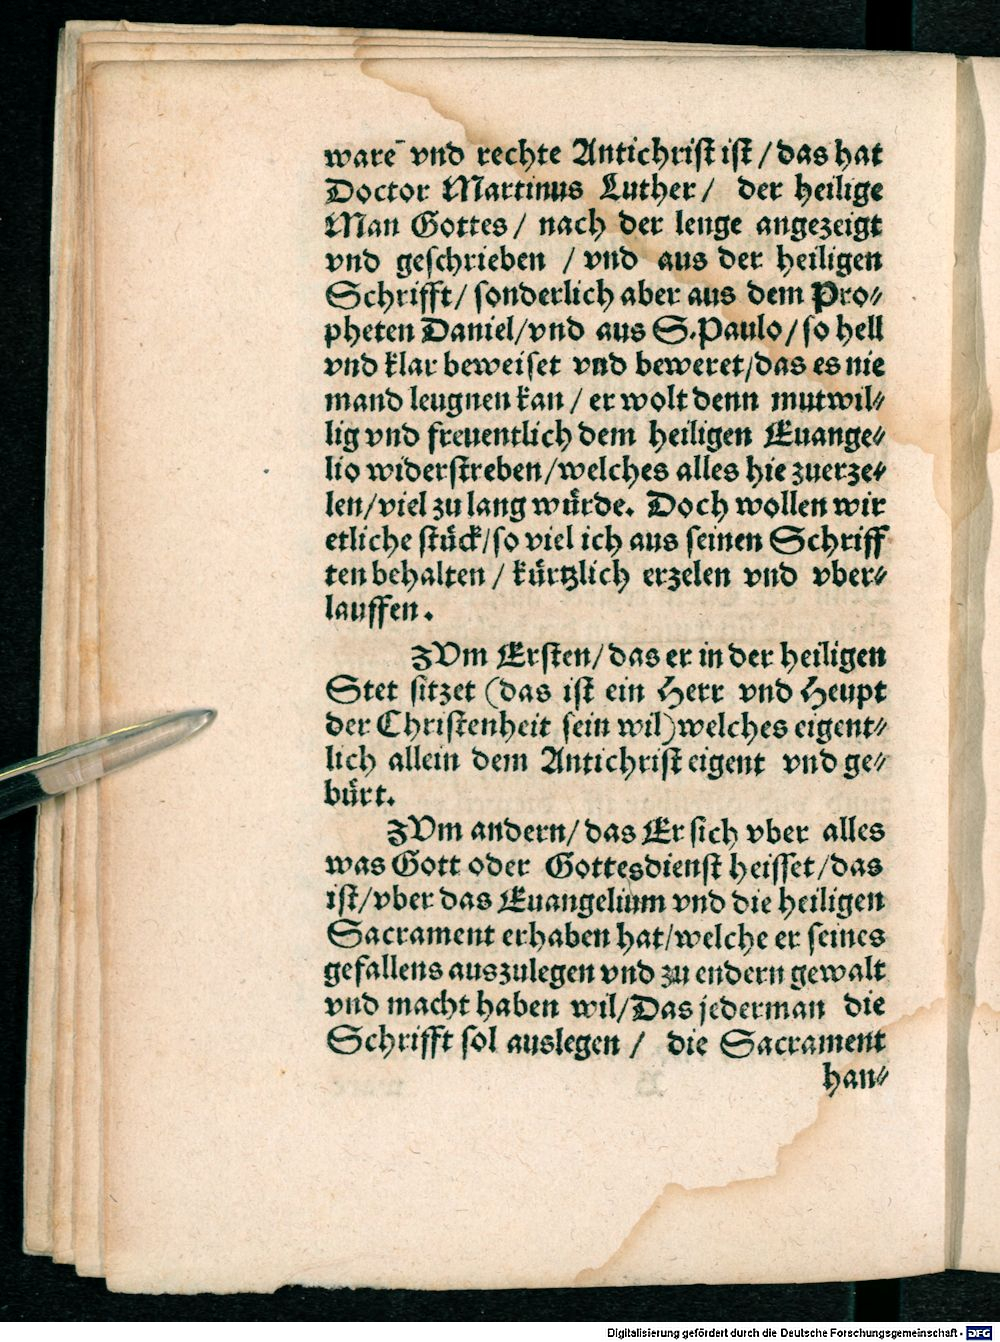 ware vnd rechte Antichrist ist / das hat
Doctor Martinus Luther / der heilige
Man Gottes / nach der lenge angezeigt
vnd geschrieben / vnd aus der heiligen
Schrifft / sonderlich aber aus dem Pro⸗
pheten Daniel / vnd aus S. Paulo / so hell
vnd klar beweiset vnd beweret / das es nie
mand leugnen kan / er wolt denn mutwil⸗
lig vnd freuentlich dem heiligen Euange⸗
lio widerstreben / welches alles hie zuerze⸗
len / viel zu lang würde. Doch wollen wir
etliche stück / so viel ich aus seinen Schriff
ten behalten / kürtzlich erzelen vnd vber⸗
lauffen.
ZVm Ersten / das er in der heiligen
Stet sitzet (das ist ein Herr vnd Heupt
der Christenheit sein wil) welches eigent⸗
lich allein dem Antichrist eigent vnd ge⸗
bürt.
ZVm andern / das Er sich vber alles
was Gott oder Gottesdienst heisset / das
ist / vber das Euangelium vnd die heiligen
Sacrament erhaben hat / welche er seines
gefallens auszulegen vnd zu endern gewalt
vnd macht haben wil / Das jederman die
Schrifft sol auslegen / die Sacrament
han⸗
Digitalisierung gefördert durch die Deutsche Forschungsgemeinschaft - DFG